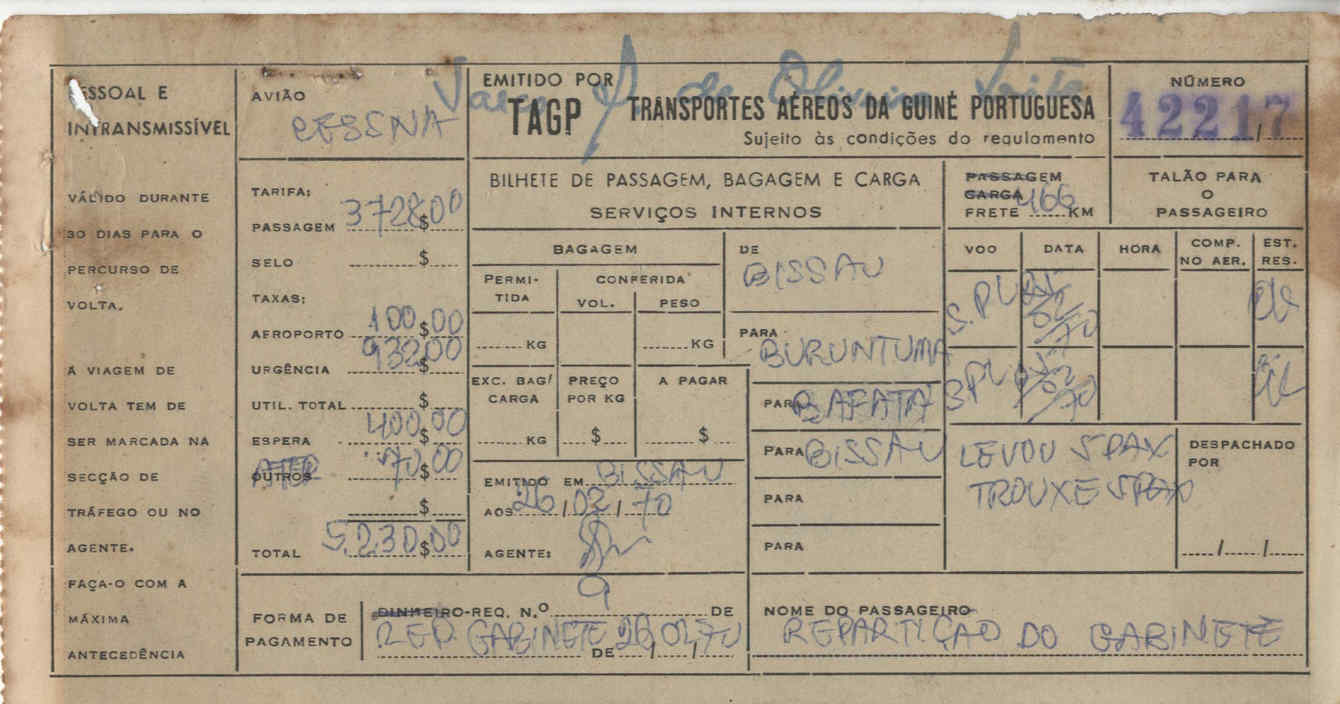 PESSOAL E
INTRANSMISSÍVEL
VÁLIDO DURANTE
30 DIAS PARA O
PERCURSO DE
VOLTA.
A VIAGEM DE
VOLTA TEM DE
SER MARCADA NA
SECÇÃO DE
TRÁFEGO OU NO
AGENTE.
FAÇA-O COM A
MÁXIMA
ANTECEDÊNCIA
AVIÃO
CESSNA
TARIFA:
PASSAGEM 3728$00
SELO $
TAXAS:
AEROPORTO 100$00
URGÊNCIA 932$00
UTIL. TOTAL $
ESPERA 400$00
OUTROS 70$00
$
TOTAL 5.230$00
de Oliveira
EMITIDO POR
TAGP TRANSPORTES AÉREOS DA GUINÉ PORTUGUESA
Sujeito às condições do regulamento
NÚMERO
42217
BILHETE DE PASSAGEM, BAGAGEM E CARGA
SERVIÇOS INTERNOS
PASSAGEM
CARGA
FRETE 466 KM
TALÃO PARA
O
PASSAGEIRO
BAGAGEM
PERMI-
TIDA
CONFERIDA
VOL. PESO
KG KG
EXC. BAG/
CARGA
PREÇO
POR KG
A PAGAR
KG $ $
EMITIDO EM BISSAU
AOS 26/02/70
AGENTE:
DE
BISSAU
PARA
BURUNTUMA
PARA BAFATÁ
PARA BISSAU
PARA
PARA
VOO DATA HORA COMP. NO AER. EST. RES.
LEVOU 5 PAX
TROUXE 5 PAX
DESPACHADO
POR
/ /
FORMA DE
PAGAMENTO
DINHEIRO-REQ. N.º 9 DE
REP. GABINETE DE 26/02/70
NOME DO PASSAGEIRO
REPARTIÇÃO DO GABINETE